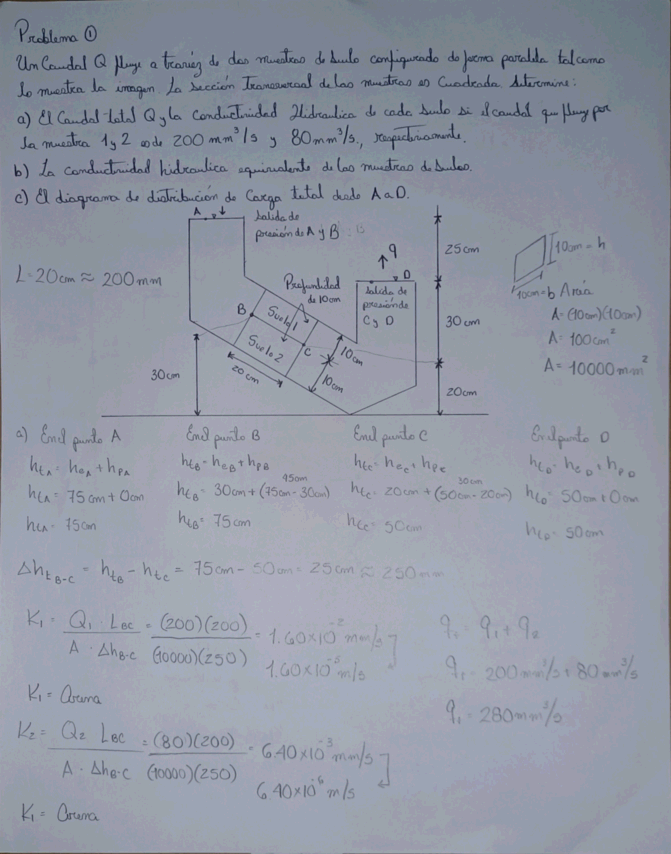 Problema ①
Un Caudal Q fluye a travéz de dos muestras de suelo configurado de forma paralela tal como
lo muestra la imagen La sección Transversal de las muestras es Cuadrada Determine:
a) El Caudal total Q y la Conductividad Hidraulica de cada suelo si el caudal que fluye por
la muestra 1 y 2 es de 200 mm³/s y 80 mm³/s, respectivamente.
b) La conductividad hidraulica equivalente de las muestras de suelos.
c) El diagrama de distribución de Carga total desde A a D.
A
Salida de
presión de A y B
L=20cm ≈ 200mm
Profundidad
de 10cm
q
D
Salida de
presión de
C y D
25cm
30cm
20cm
B
Suelo 1
Suelo 2
C
20cm
10cm
10cm
30cm
10cm = h
10cm = b Area
A= (10cm)(10cm)
A= 100cm²
A= 10000mm²
a) En el punto A
htA = heA + hPA
htA = 75cm + 0cm
htA = 75cm
En el punto B
htB = heB + hPB
45cm
htB = 30cm + (75cm - 30cm)
htB = 75cm
En el punto C
htC = heC + hPC
30cm
htC = 20cm + (50cm - 20cm)
htC = 50cm
En el punto D
htD = heD + hPD
htD = 50cm + 0cm
htD = 50cm
ΔhtB-C = htB - htC = 75cm - 50cm = 25cm ≈ 250mm
K1 = Q1 · LBC / A · ΔhB-C = (200)(200) / (10000)(250) = 1.60x10⁻² mm/s
1.60x10⁻⁵ m/s
K1 = Arena
qt = q1 + q2
qt = 200mm³/s + 80mm³/s
qt = 280mm³/s
K2 = Q2 LBC / A · ΔhB-C = (80)(200) / (10000)(250) = 6.40x10⁻³ mm/s
6.40x10⁻⁶ m/s
K1 = Arena